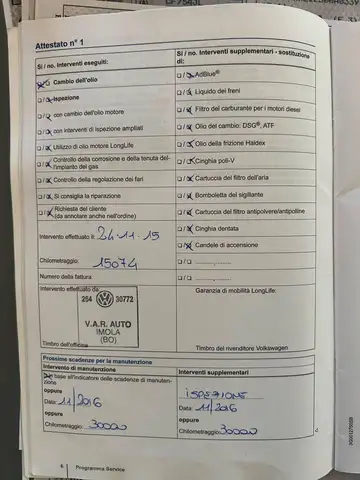 Attestato n° 1
Si / no. Interventi eseguiti:
Cambio dell'olio
Ispezione
con cambio dell'olio motore
con interventi di ispezione ampliati
Utilizzo di olio motore LongLife
Controllo della corrosione e della tenuta dell'impianto del gas
Controllo della regolazione dei fari
Si consiglia la riparazione
Richiesta del cliente
(da annotare anche nell'ordine)
Intervento effettuato il: 24-11-15
Chilometraggio: 15074
Numero della fattura:
Intervento effettuato da:
264 30772
V.A.R. AUTO
IMOLA
(BO)
Timbro dell'officina
Si / no. Interventi supplementari - sostituzione di:
AdBlue®
Liquido dei freni
Filtro del carburante per i motori diesel
Olio del cambio: DSG®, ATF
Olio della frizione Haldex
Cinghia poli-V
Cartuccia del filtro dell'aria
Bomboletta del sigillante
Cartuccia del filtro antipolvere/antipolline
Cinghia dentata
Candele di accensione
Garanzia di mobilità LongLife:
Timbro del rivenditore Volkswagen
Prossime scadenze per la manutenzione
Intervento di manutenzione
base all'indicatore delle scadenze di manutenzione
oppure
Data: 11/2016
oppure
Chilometraggio: 30000
Interventi supplementari
ISPEZIONE
oppure
Data: 11/2016
oppure
Chilometraggio: 30000
6 Programma Service